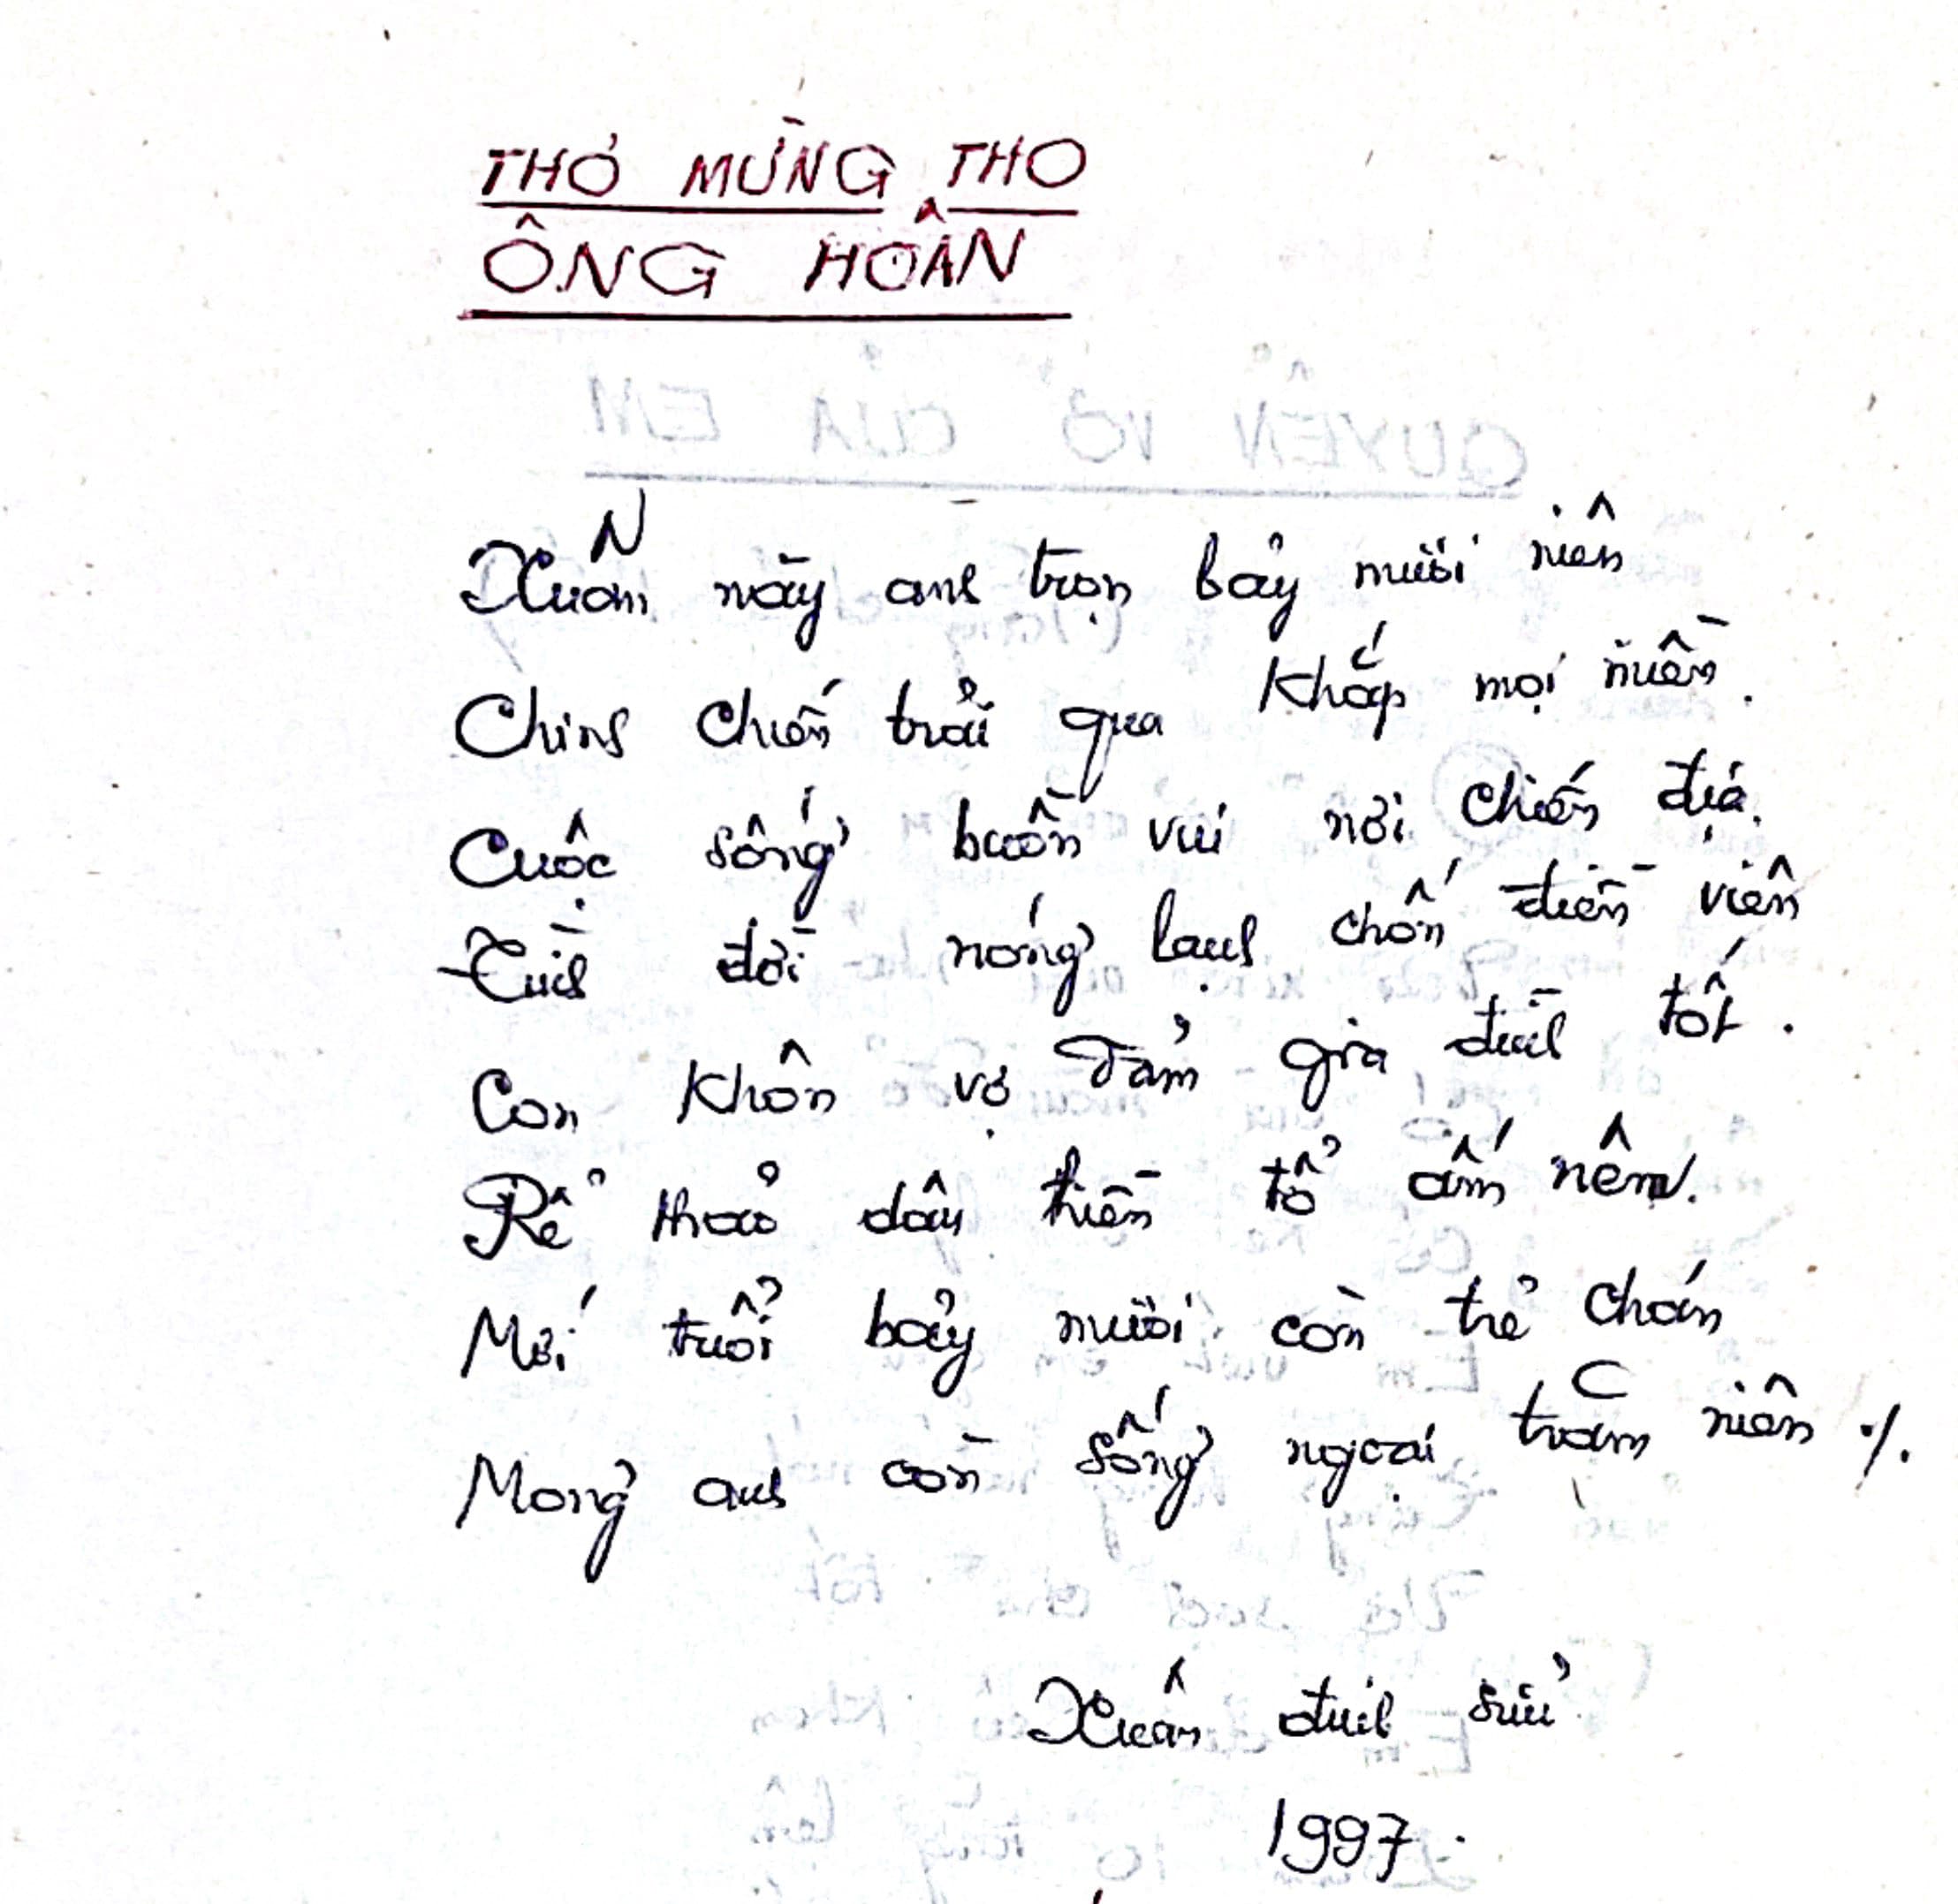 THƠ MỪNG THO
ÔNG HOÂN
Xuân nãy anh trọn bảy mươi niên
Chinh chiến trải qua khắp mọi miền.
Cuộc sống buồn vui nơi chiến địa.
Tình đời nóng lạnh chốn điền viên
Con khôn vợ đảm gia đình tốt.
Rể thảo dâu hiền tổ ấm nêm.
Mới tuổi bảy mươi còn trẻ chán
Mong anh còn sống ngoại trăm niên ./.
Xuân đinh sửu
1997.
QUYỂN VỞ CỦA EM